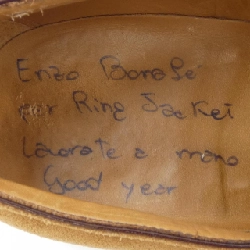 Enzo Bonafé
per Ring Jacket
Lavorate a mano
Good year